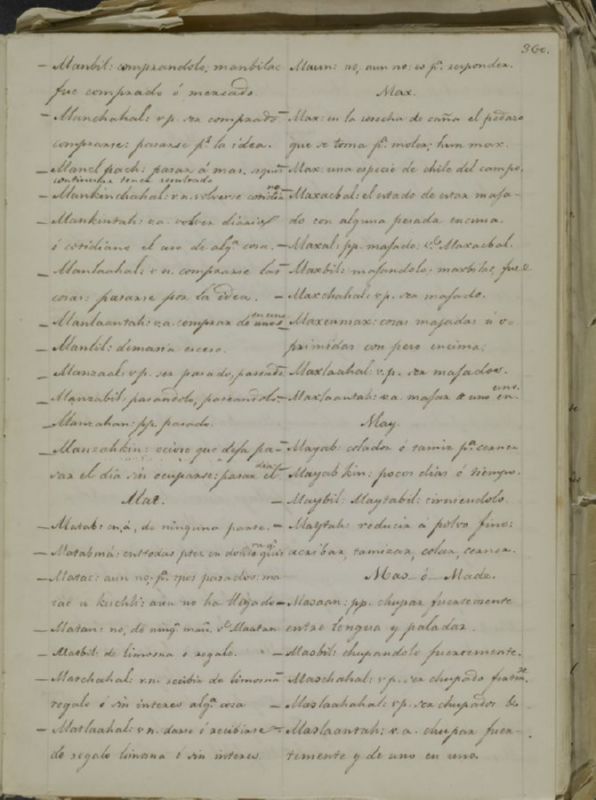 360.
– Manbil: comprandolo, manbilac
fue comprado ó mercado.
– Manchahal: vp. ser comprado
comprarse: pasarse pr. la idea.
– Manel pach: pasar á mas, seguir
continuar
– Mankinchahal: v.n. volverse cotidia
no
– Mankintah: va. volver diario
ó cotidiano el uso de algª cosa.
– Manlaahal: v.n. comprarse las
cosas: pasarse por la idea.
– Manlaantah: va. comprar de uno
en uno
– Mantil: demasia exceso.
– Manzaal: vp. ser pasado, paseado
– Manzabil: pasandolo, paseandolo
– Manzahan: pp. pasado.
– Manzahkin: ocioso que deja pa-
sar el dia sin ocuparse: pasar el
dia
Mat.
– Matab: en, á, de ninguna parte.
– Matabmá: en todas ptes, en donde quie
ra qª
– Matac: aun no, pª. tpos pasados: ma
tac u kuchli: aun no ha llegado
– Matan: no, de ningª manª. Vº Maatan
– Matbil: de limosna ó regalo.
– Matchahal: v.n. recibir de limosna
regalo ó sin interes algª cosa
– Matlaahal: v.n. darse ó recibirse
de regalo limosna ó sin interes
– Maun: no, aun no; es pª. responder.
Max.
– Max: en la cosecha de caña el pedazo
que se toma pª. moler; hum max.
– Max: una especie de chile del campo.
– Maxacbal: el estado de estar maja-
do con alguna pesada encima.
– Maxal: pp. majado: Vº Maxacbal.
– Maxbil: majandolo: maxbilac, fue &
– Maxchahal: v.p. ser majado.
– Maxcamax: cosas majadas ú o-
primidas con peso encima.
– Maxlaahal: v.p. ser majados.
– Maxlaantah: va. majar de uno en
uno.
May.
– Mayab: colador ó tamiz pª. cerner
– Mayab kin: pocos dias ó tiempo.
– Maybil: Maytabil: cirniendolo.
– Maytah: reducir á polvo fino:
acribar, tamizar, colar, cerner.
Maz ó Madz.
– Mazaan: pp. chupar fuertemente
entre lengua y paladar.
– Mazbil: chupandolo fuertemente.
– Mazchahal: v.p. ser chupado fuertem
te.
– Mazlaahahal: v.p. ser chupados &
– Mazlaantah: v.a. chupar fuer-
temente y de uno en uno.